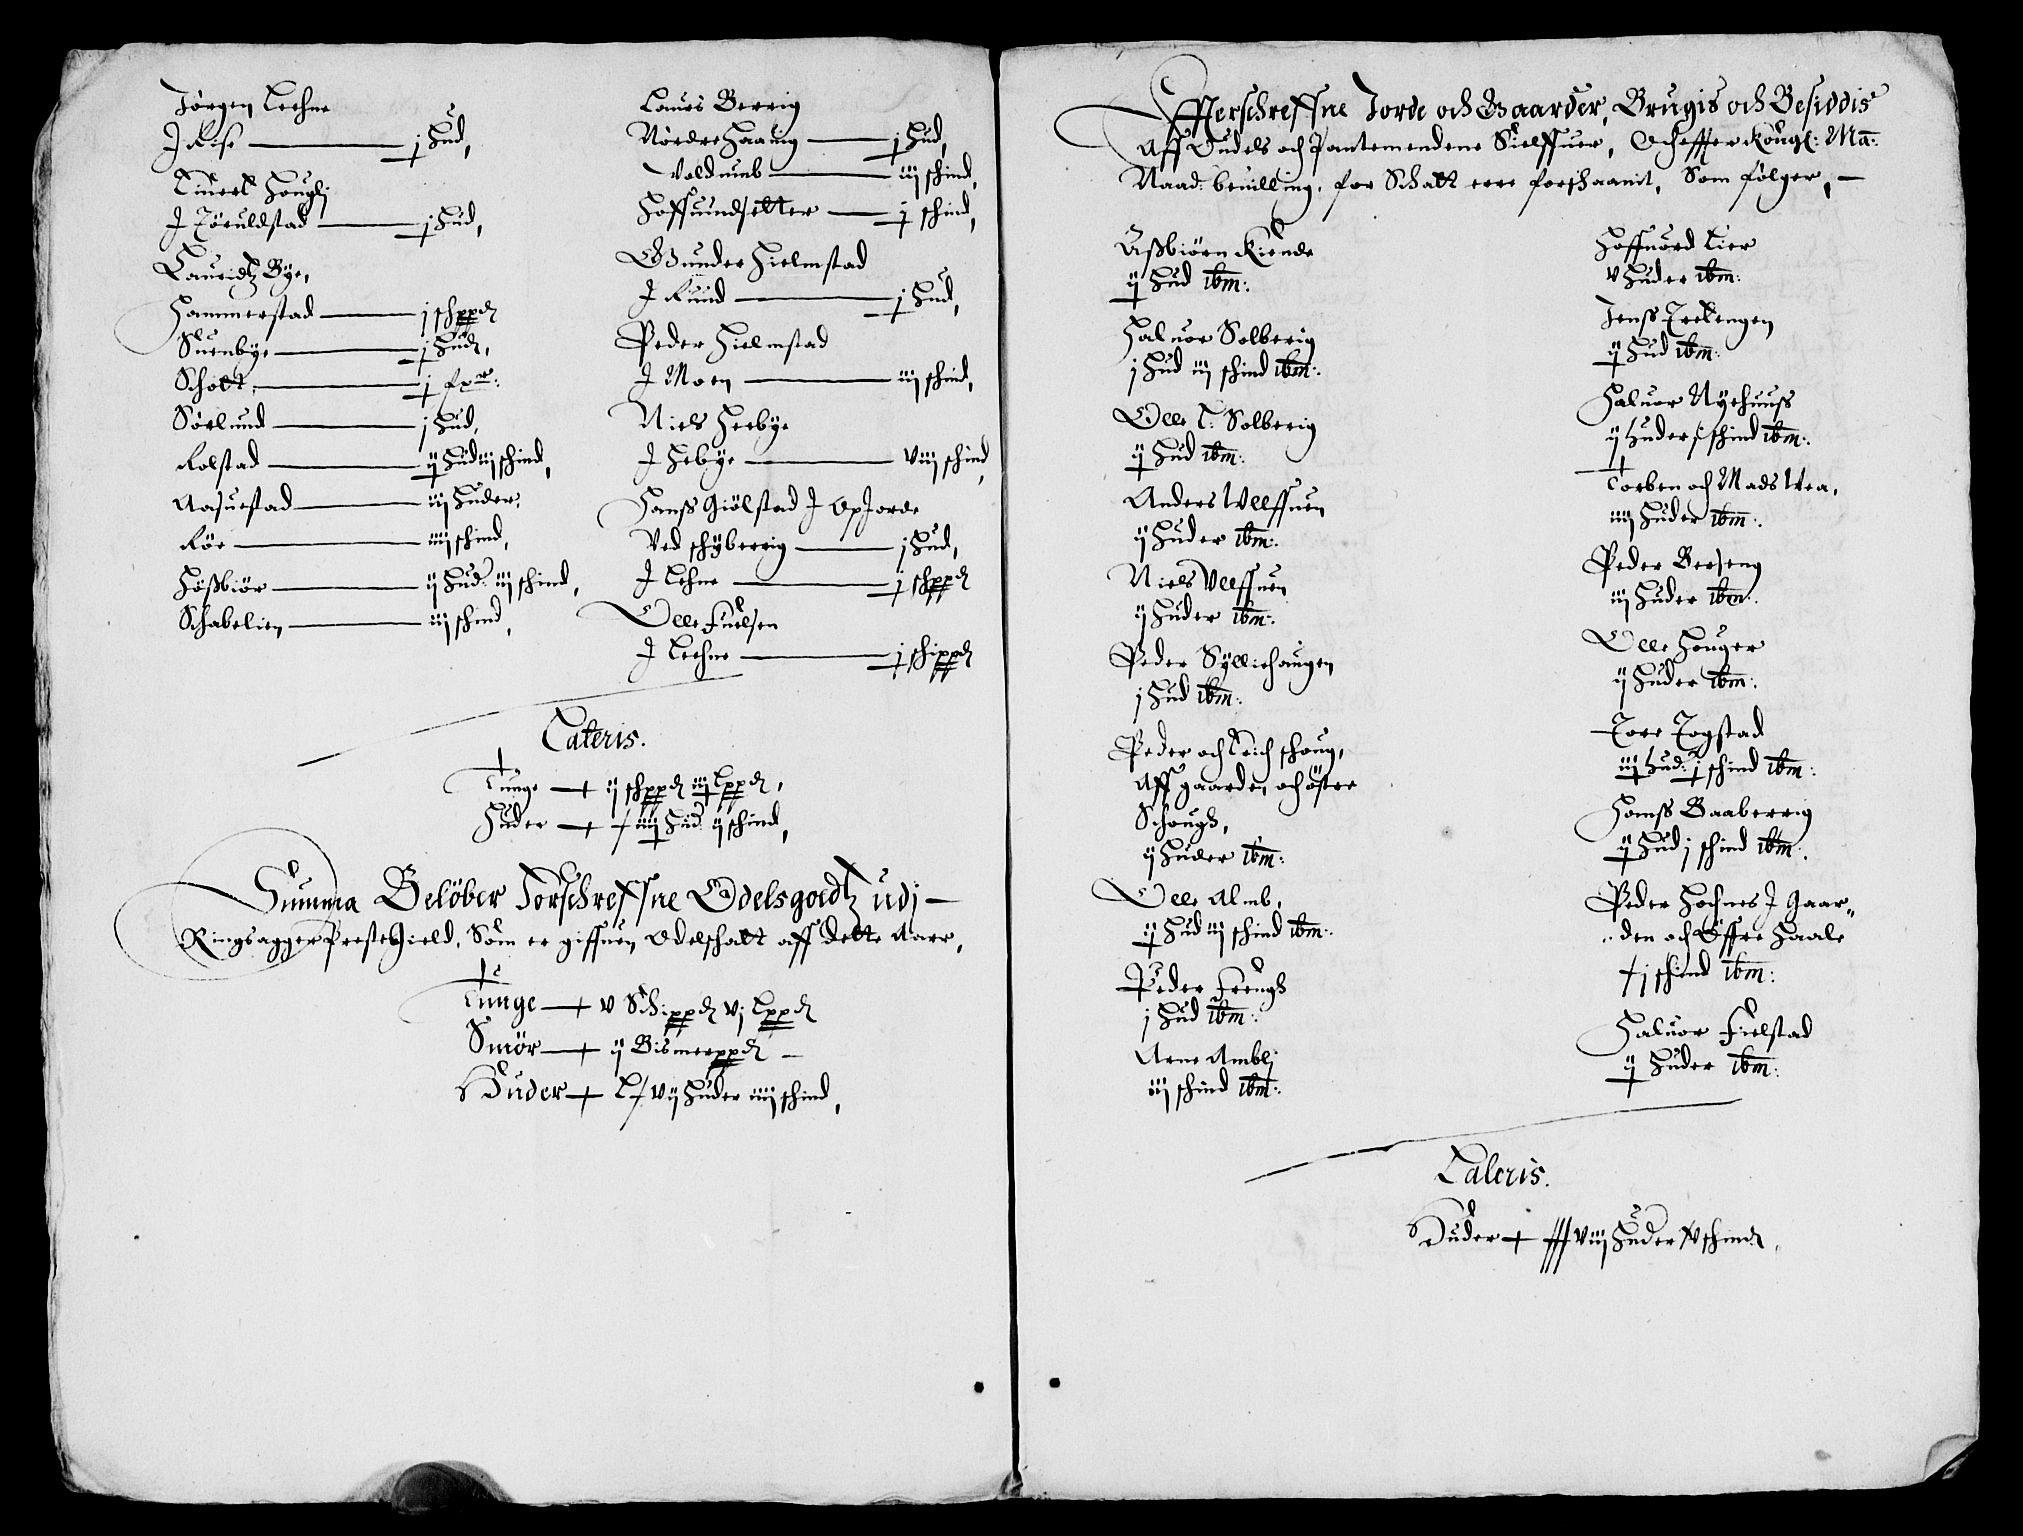 Jørgen Leehne
J Rise — j Hud,
Siuert Hougli
J Tøruldstad — j Hud,
Lauridtz Bye,
Hammerstad — j schppd
Suenbye — j Hud,
Scholt — j
Sørlund — j Hud,
Rolstad — ij Hud iij schind,
Aasuestad — iij Huder,
Røe — iiij schind,
Høssbiør — ij Hud: iij schind,
Schabelien — iij schind,
Laurs Berrig
Nørdre Haaug — j Hud,
Voldumb — iij schind,
Hoffuindsetter — j schind,
Gunder Hielmstad
J Rund — j Hud,
Peder Hielmstad
J Moen — iij schind,
Niels Heebye
J Hebye — viij schind,
Hanss Giølstad J Opjorde
Ved schyberrig — j Hud,
J Lehne — j schppd
Olle Fuelsen
J Leehne — j schippd
Lateris.
Tunge — ij schppd iij Lppd,
Huder — iiij Hud: ij schind,
Summa Beløber Forschreffne Odelsgoedtz udj —
Ringsagger Prestegield, Som er giffuen Odelschatt aff dette Aarr,
Tunge — v Schippd vj Lppd
Smør — ij Bismerppd —
Huder — L vij Huder iiij schind,
Effterschreffne Jorde och Gaarder, Brugis och Besiddis
Aff Oudels och Pantemendene Sielffuer, Och effter Kongl: Ma:
Naad: beuilling, for Schatt erre forschaanit, Som følger, —
Assbiørn Kiende
ij Hud ibm:
Haluor Solberig
j Hud iij schind ibm:
Olle Solberig
ij Hud ibm:
Anders Vlffuen
ij Huder ibm:
Niels Vlffuen
ij Huder ibm:
Peder Sylliehaugen
j Hud ibm:
Peder och Erich schoug,
Aff gaarden och østre
Schough,
ij Huder ibm:
Olle Almb,
ij Hud iij schind ibm:
Peder Freugh
j Hud ibm:
Arne Ambli
iij schind ibm:
Hoffuord Lier
v Huder ibm:
Jenss Trettengen
ij Hud ibm:
Haluor Nyehuuss
ij Huder schind ibm:
Torben och Mads Vea,
iiij Huder ibm:
Peder Berseng
iij Huder ibm:
Olle Houger
ij Huder ibm:
Tore Togstad
iij Hud: j schind ibm:
Hanss Baaberrig
ij Hud j schind ibm:
Peder Hochnes J Gaar„
„den och Øffre Haale
j schind ibm:
Haluor Fielstad
ij Huder ibm:
Lateris.
Huder — viij Huder v schind,